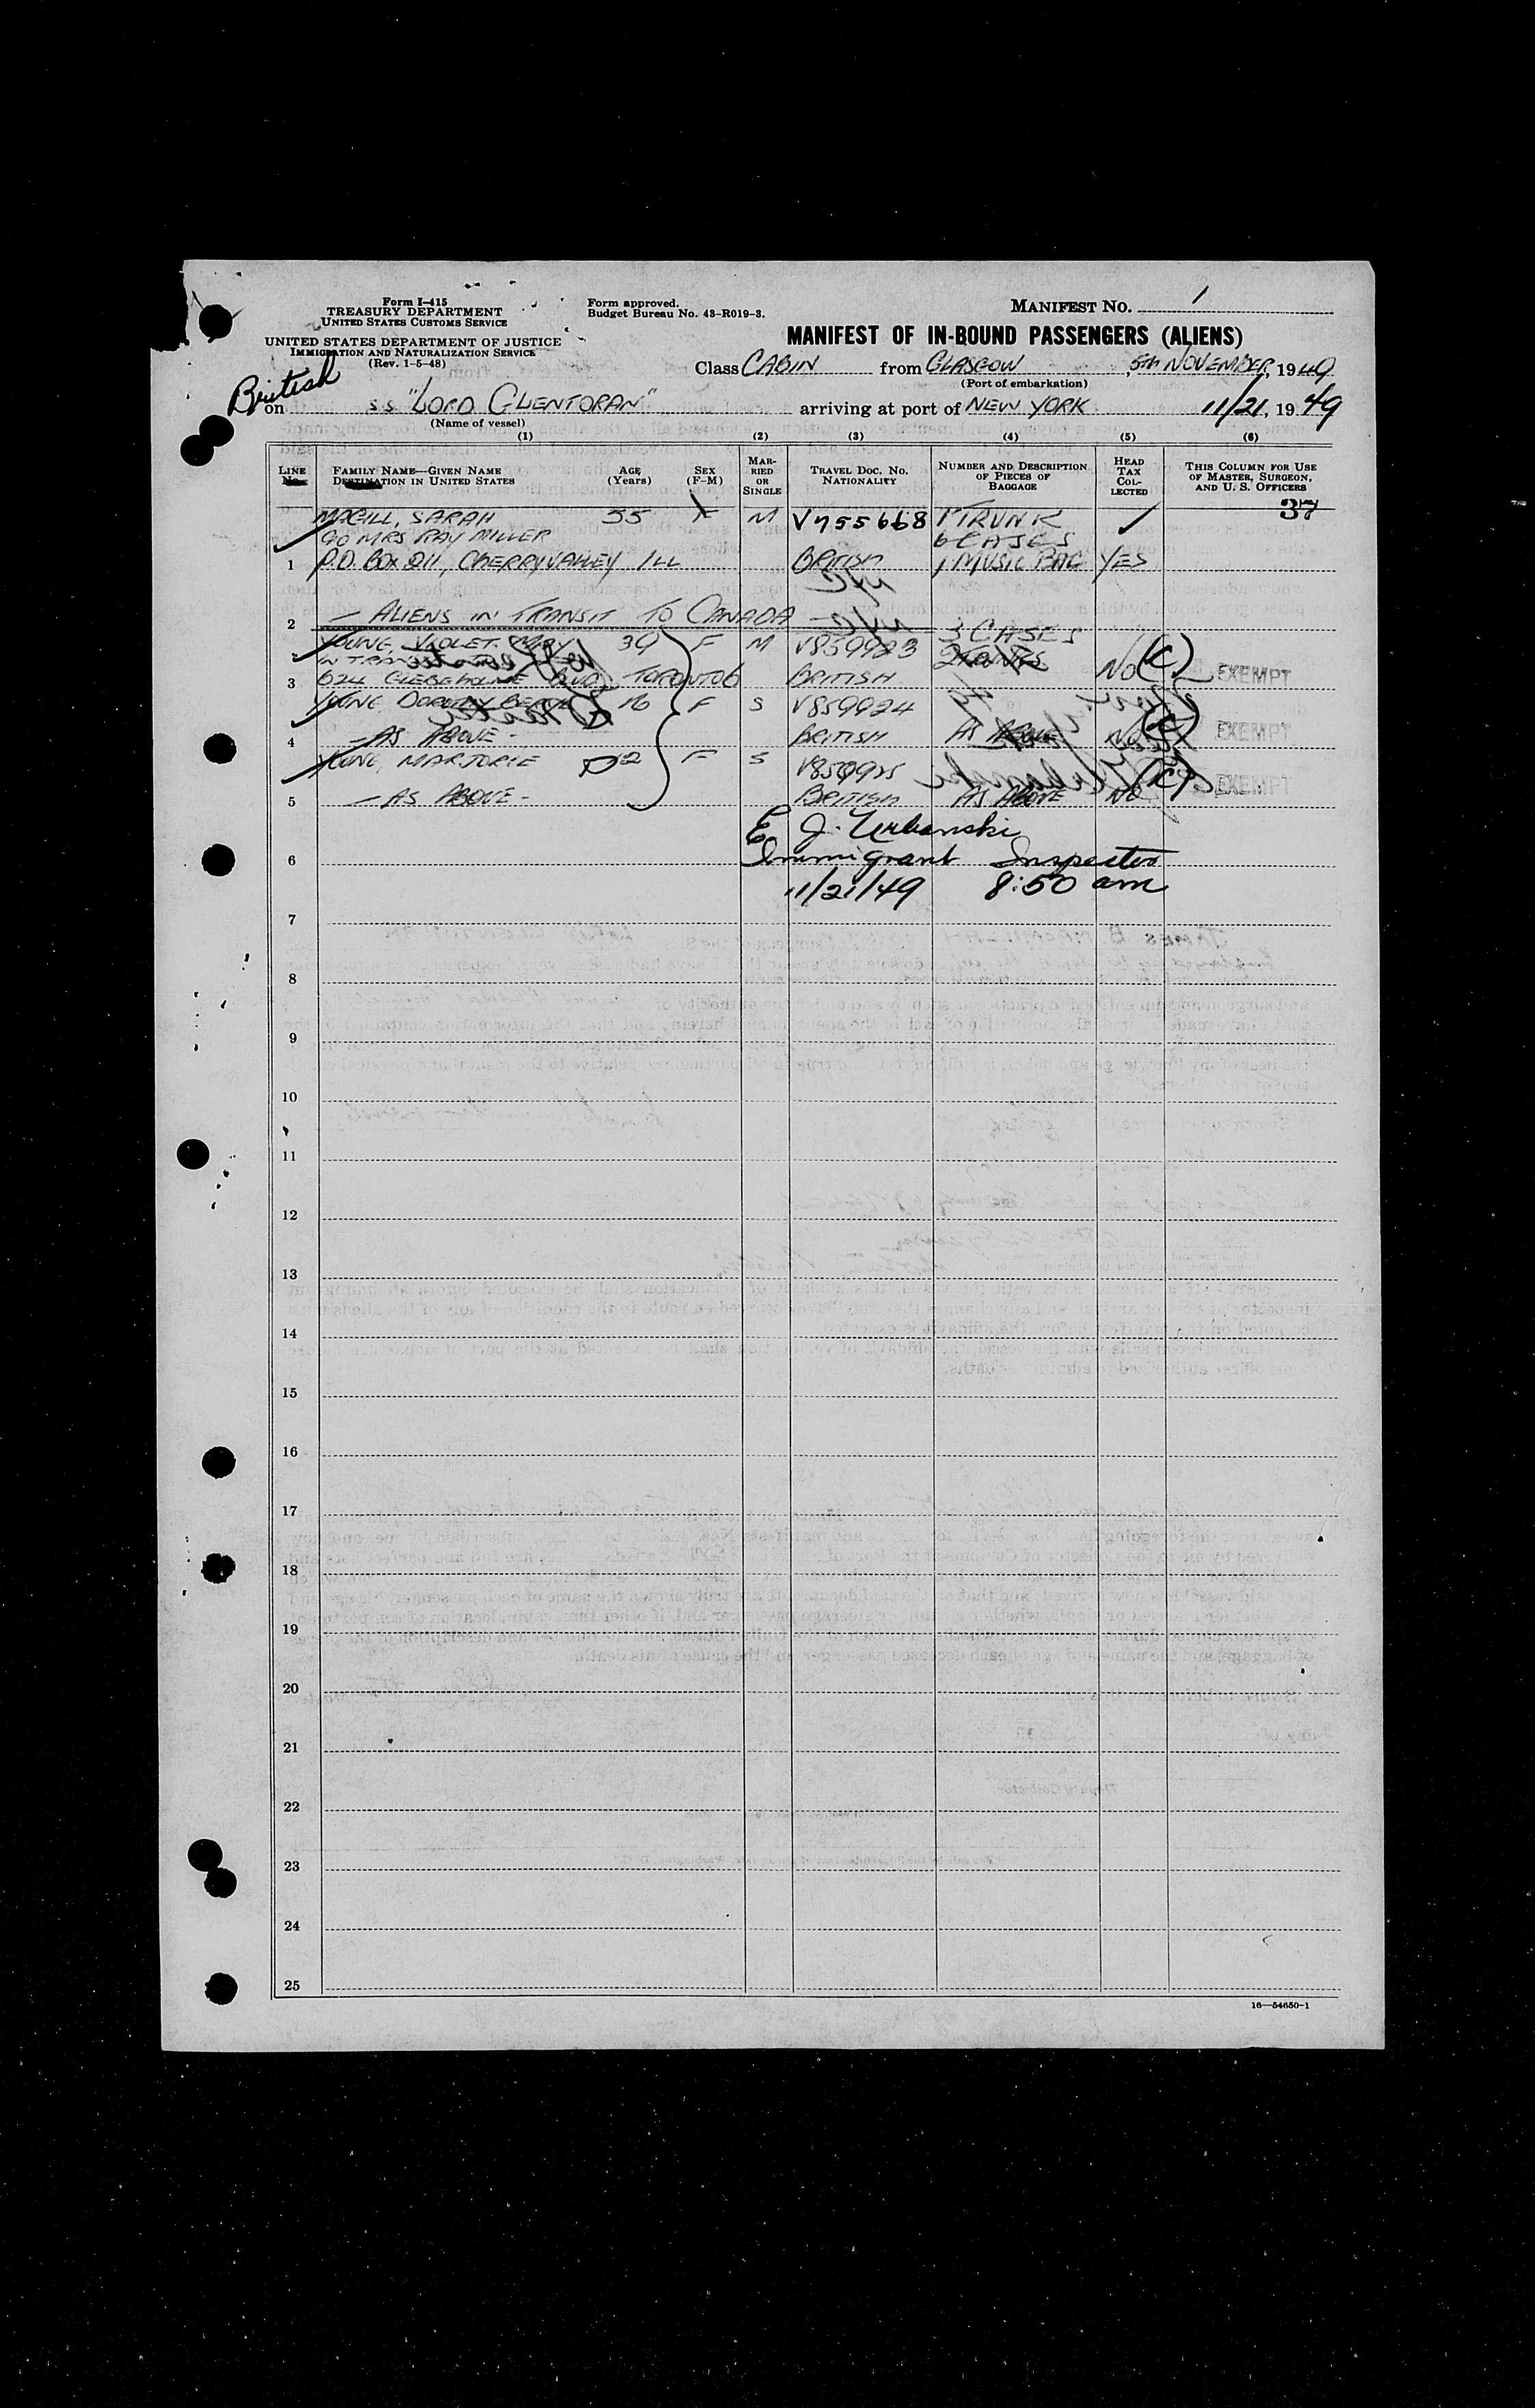 Form I-415
TREASURY DEPARTMENT
UNITED STATES CUSTOMS SERVICE
UNITED STATES DEPARTMENT OF JUSTICE
IMMIGRATION AND NATURALIZATION SERVICE
(Rev. 1-5-48)
Form approved.
Budget Bureau No. 43-R019-3.
MANIFEST NO. 1
MANIFEST OF IN-BOUND PASSENGERS (ALIENS)
Class CABIN from GLASGOW, 5TH NOVEMBER, 1949
(Port of embarkation)
British
on SS "LORD GLENTORAN" arriving at port of NEW YORK 11/21, 1949
(Name of vessel)
(1) (2) (3) (4) (5) (6)
LINE No. FAMILY NAME—GIVEN NAME DESTINATION IN UNITED STATES AGE (Years) SEX (F-M) MARRIED OR SINGLE TRAVEL DOC. NO. NATIONALITY NUMBER AND DESCRIPTION OF PIECES OF BAGGAGE HEAD TAX COLLECTED THIS COLUMN FOR USE OF MASTER, SURGEON, AND U. S. OFFICERS
37
MAGILL, SARAH 55 F M V755668 1 TRUNK
C/O MRS RAY MILLER 6 CASES
1 P.O. BOX 211, CHERRYVALLEY ILL BRITISH 1 MUSIC BAG YES
2 — ALIENS IN TRANSIT TO CANADA —
YOUNG, VIOLET MAY 39 F M V859923 3 CASES
IN TRANSIT TO 2 TRUNKS
3 624 GLEBEHOLME BLVD, TORONTO 6 BRITISH NO (C) EXEMPT
YOUNG DOROTHY 16 F S V859924
4 — AS ABOVE - BRITISH AS ABOVE NO (C) EXEMPT
YOUNG, MARJORIE 12 F S V859925
5 — AS ABOVE - BRITISH AS ABOVE NO (C) EXEMPT
E. J. Urbanski
6 Immigrant Inspector
11/21/49 8:50 am
7
8
9
10
11
12
13
14
15
16
17
18
19
20
21
22
23
24
25
16—54650-1